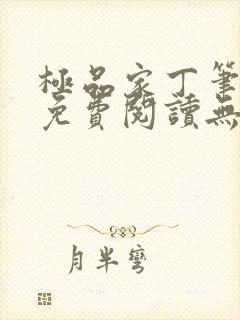 極品家丁筆
免費閱讀無
月半彎